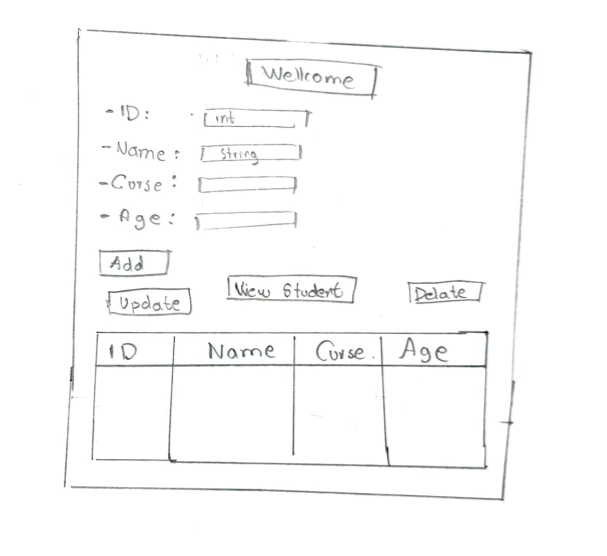 Wellcome
- ID: int
- Name: String
- Curse:
- Age:
Add
Update View Student Delate
ID Name Curse. Age